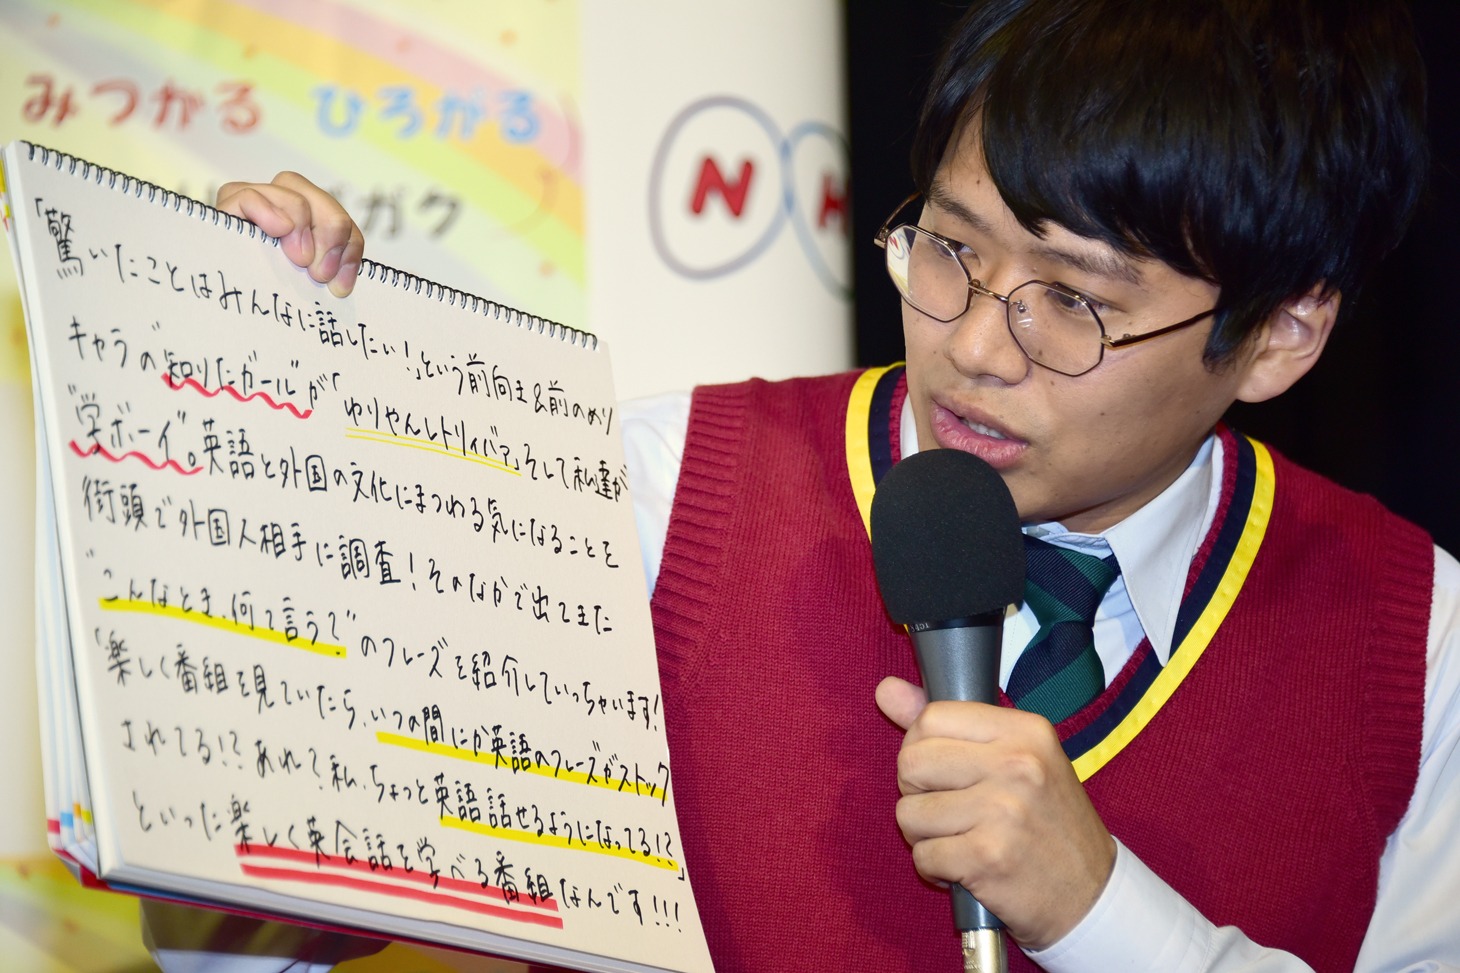 みつかる ひろがる
ガク
NH
「驚いたことはみんなに話したい！」という前向き&前のめり
キャラの"知りたガール"が「ゆりやんレトリィバァ」そして私達が
"学ボーイ"。英語と外国の文化にまつわる気になることを
街頭で外国人相手に調査！そのなかで出てきた
"こんなとき、何て言う？"のフレーズを紹介していっちゃいます！
「楽しく番組を見ていたら、いつの間にか英語のフレーズがストック
されてる！？あれ？私、ちょっと英語話せるようになってる！？」
といった楽しく英会話を学べる番組なんです！！！